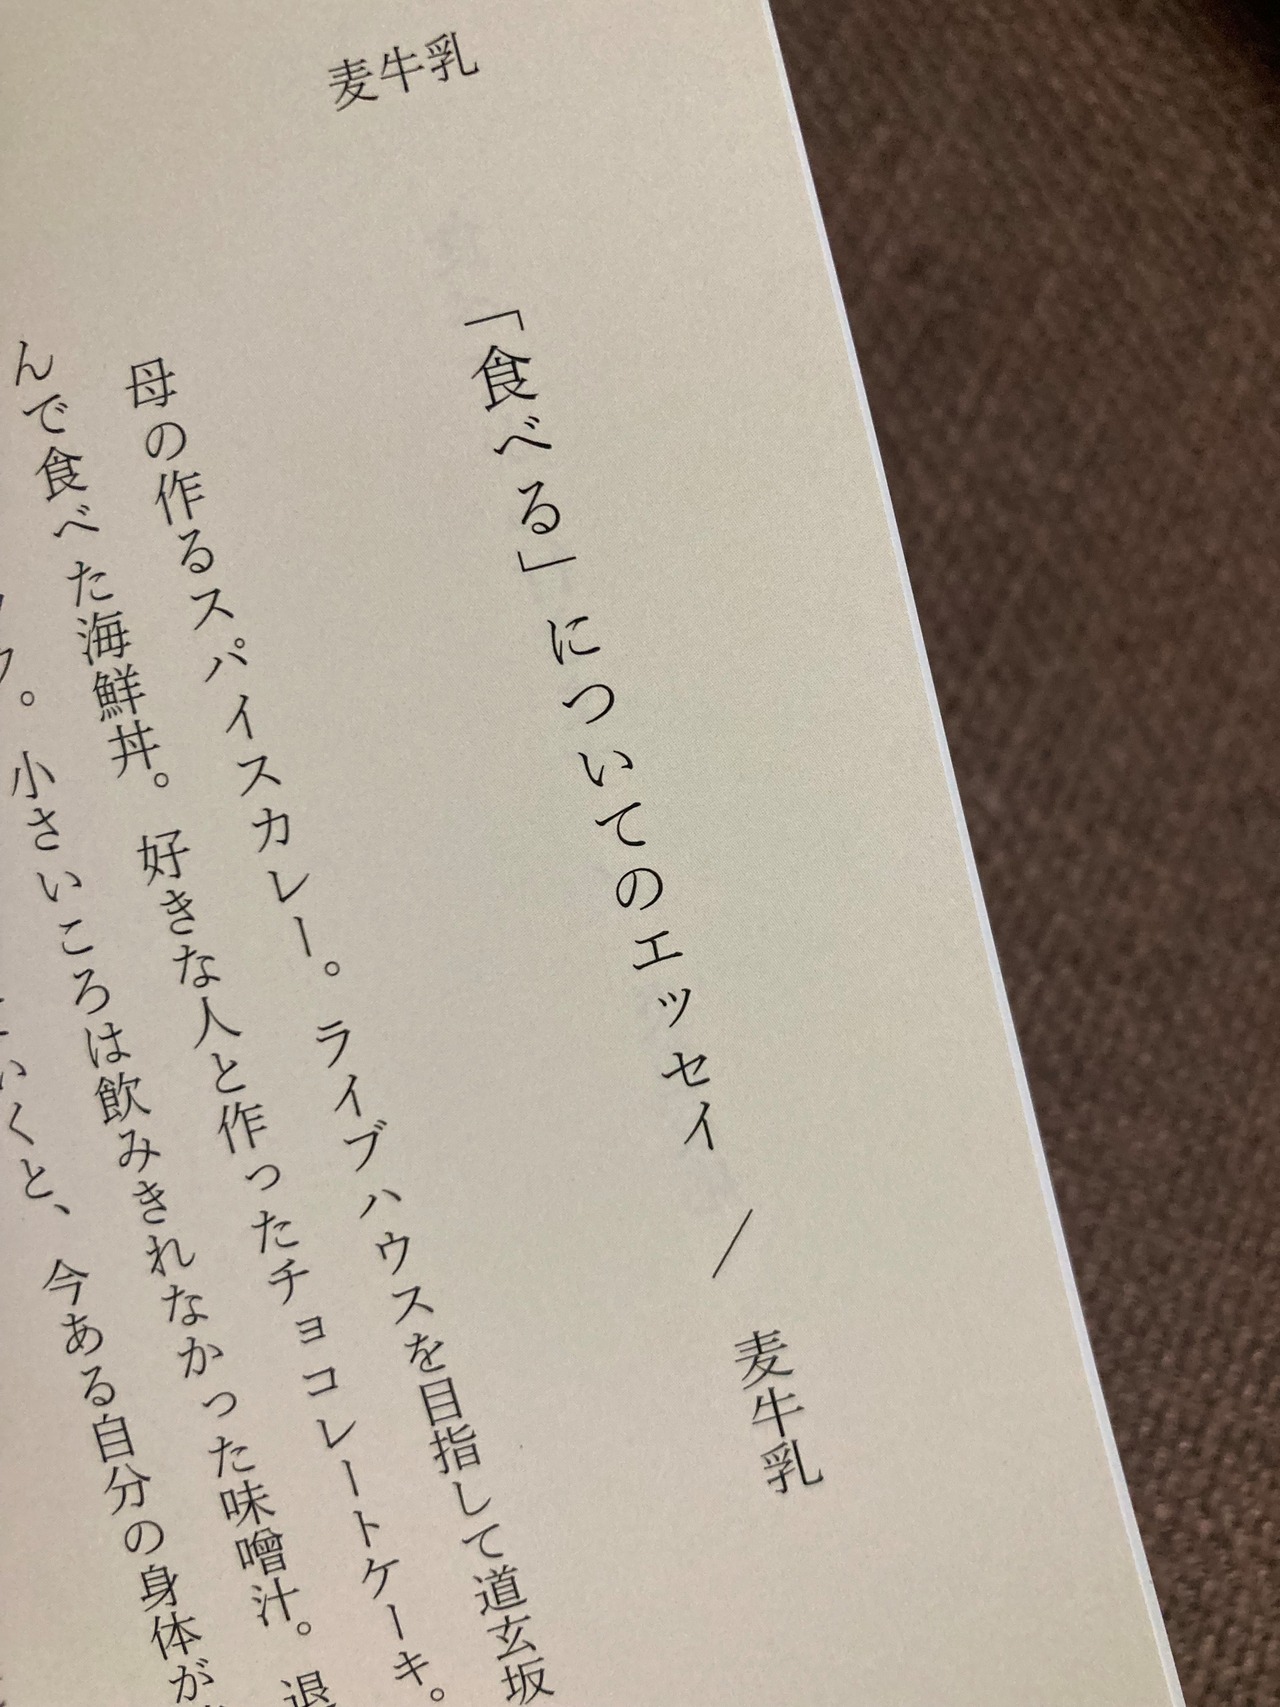 麦牛乳
「食べる」についてのエッセイ / 麦牛乳
母の作るスパイスカレー。ライブハウスを目指して道玄坂
んで食べた海鮮丼。好きな人と作ったチョコレートケーキ。
。小さいころは飲みきれなかった味噌汁。退
いくと、今ある自分の身体が